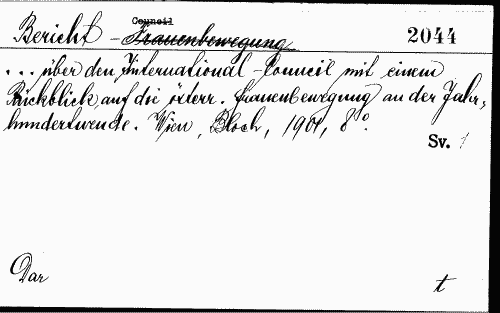 Council
Bericht - Frauenbewegung 2044
... über den International-Council mit einem
Rückblick auf die österr. Frauenbewegung an der Jahr-
hundertwende. Wien, Bloch, 1901, 8°.
Sv. 1
Dar t